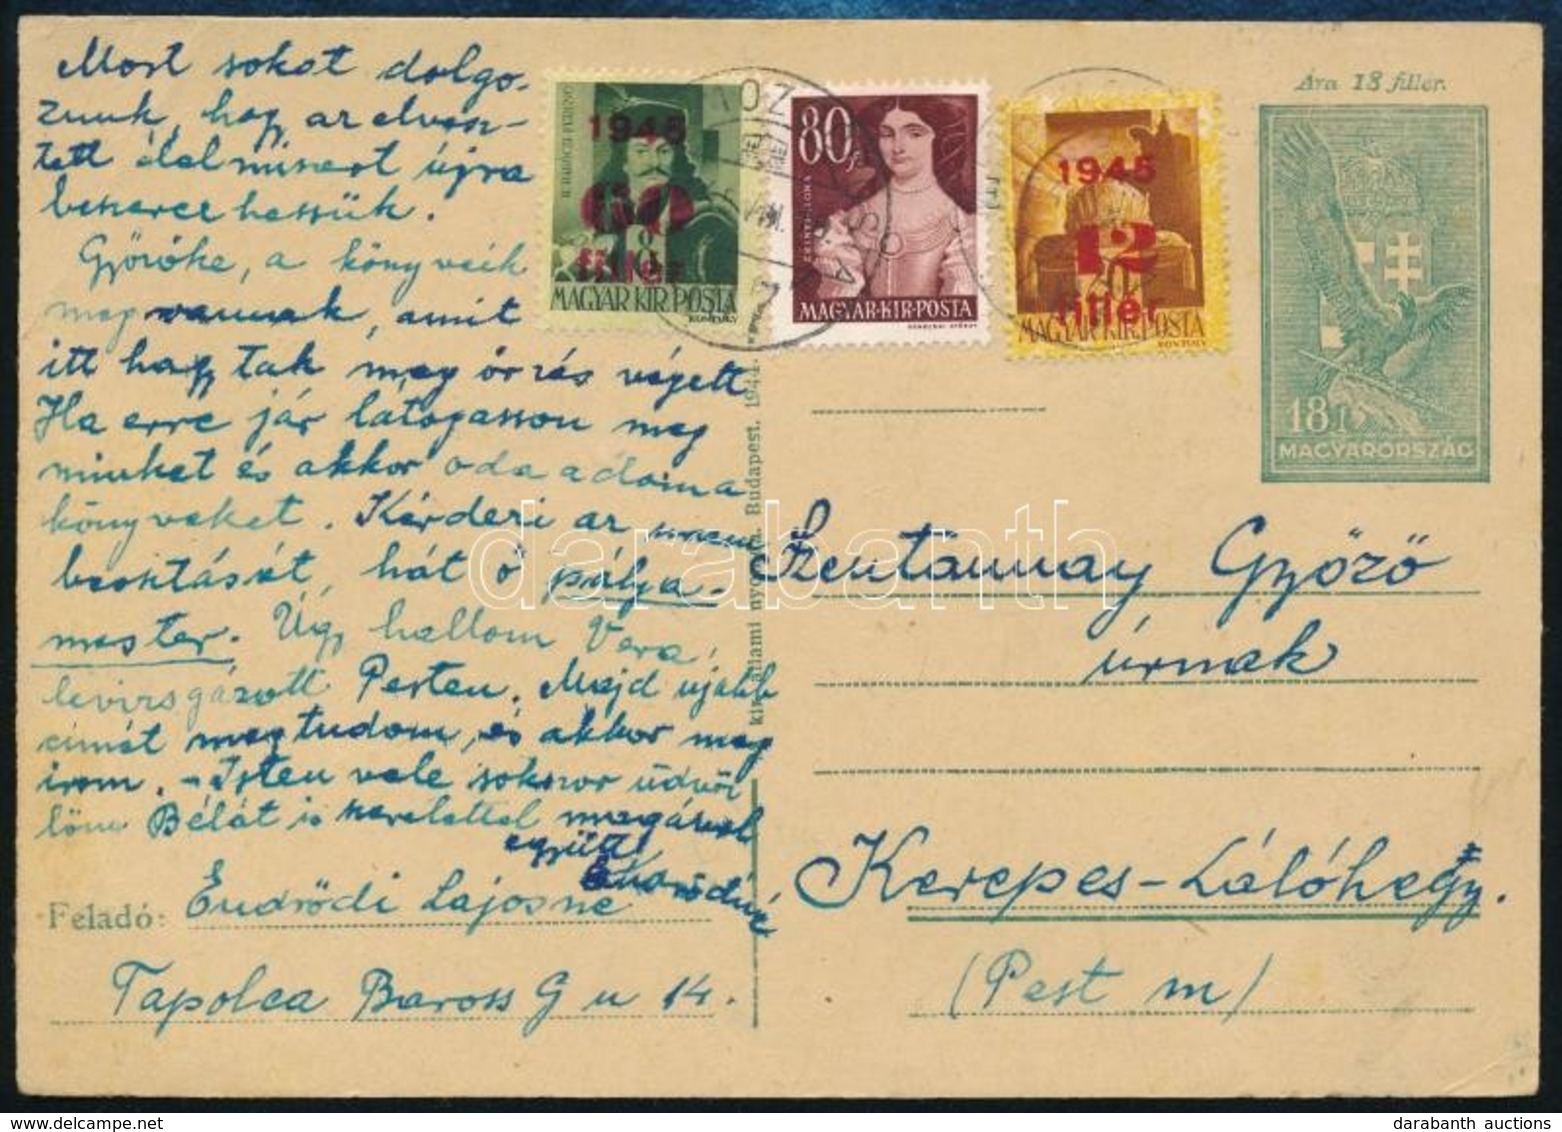 Most sokat dolgo-
zunk, hogy az elvesz-
tett élelmiszert újra
beszerezhessük.
Győzőke, a könyveik
meg vannak, amit
itt hagytak meg őrzés végett
Ha erre jár látogasson meg
minket és akkor oda adom a
könyveket. Kérdezi az uram
beosztását, hát ő pálya-
mester. Úgy hallom Vera,
levizsgázott Pesten. Majd ujabb
címét megtudom, és akkor meg
irom. – Isten vele sokszor üdvöz
löm Bélát is szeretettel magával
együtt
Endrődiné
Feladó: Endrődi Lajosné
Tapolca Baross G u 14.
kir. állami nyomda. Budapest. 1944.
1945
60
fillér
8
MAGYAR KIR. POSTA
KONTULY
II. RÁKÓCZI FERENC
80f
ZRINYI ILONA
MAGYAR·KIR·POSTA
1945
12
fillér
MAGYAR KIR. POSTA
KONTULY
Ára 18 fillér.
18 f
MAGYARORSZÁG
Szentannay Győző
úrnak
Kerepes-Szilóhegy.
(Pest m)
darabanth
darabanth auctions